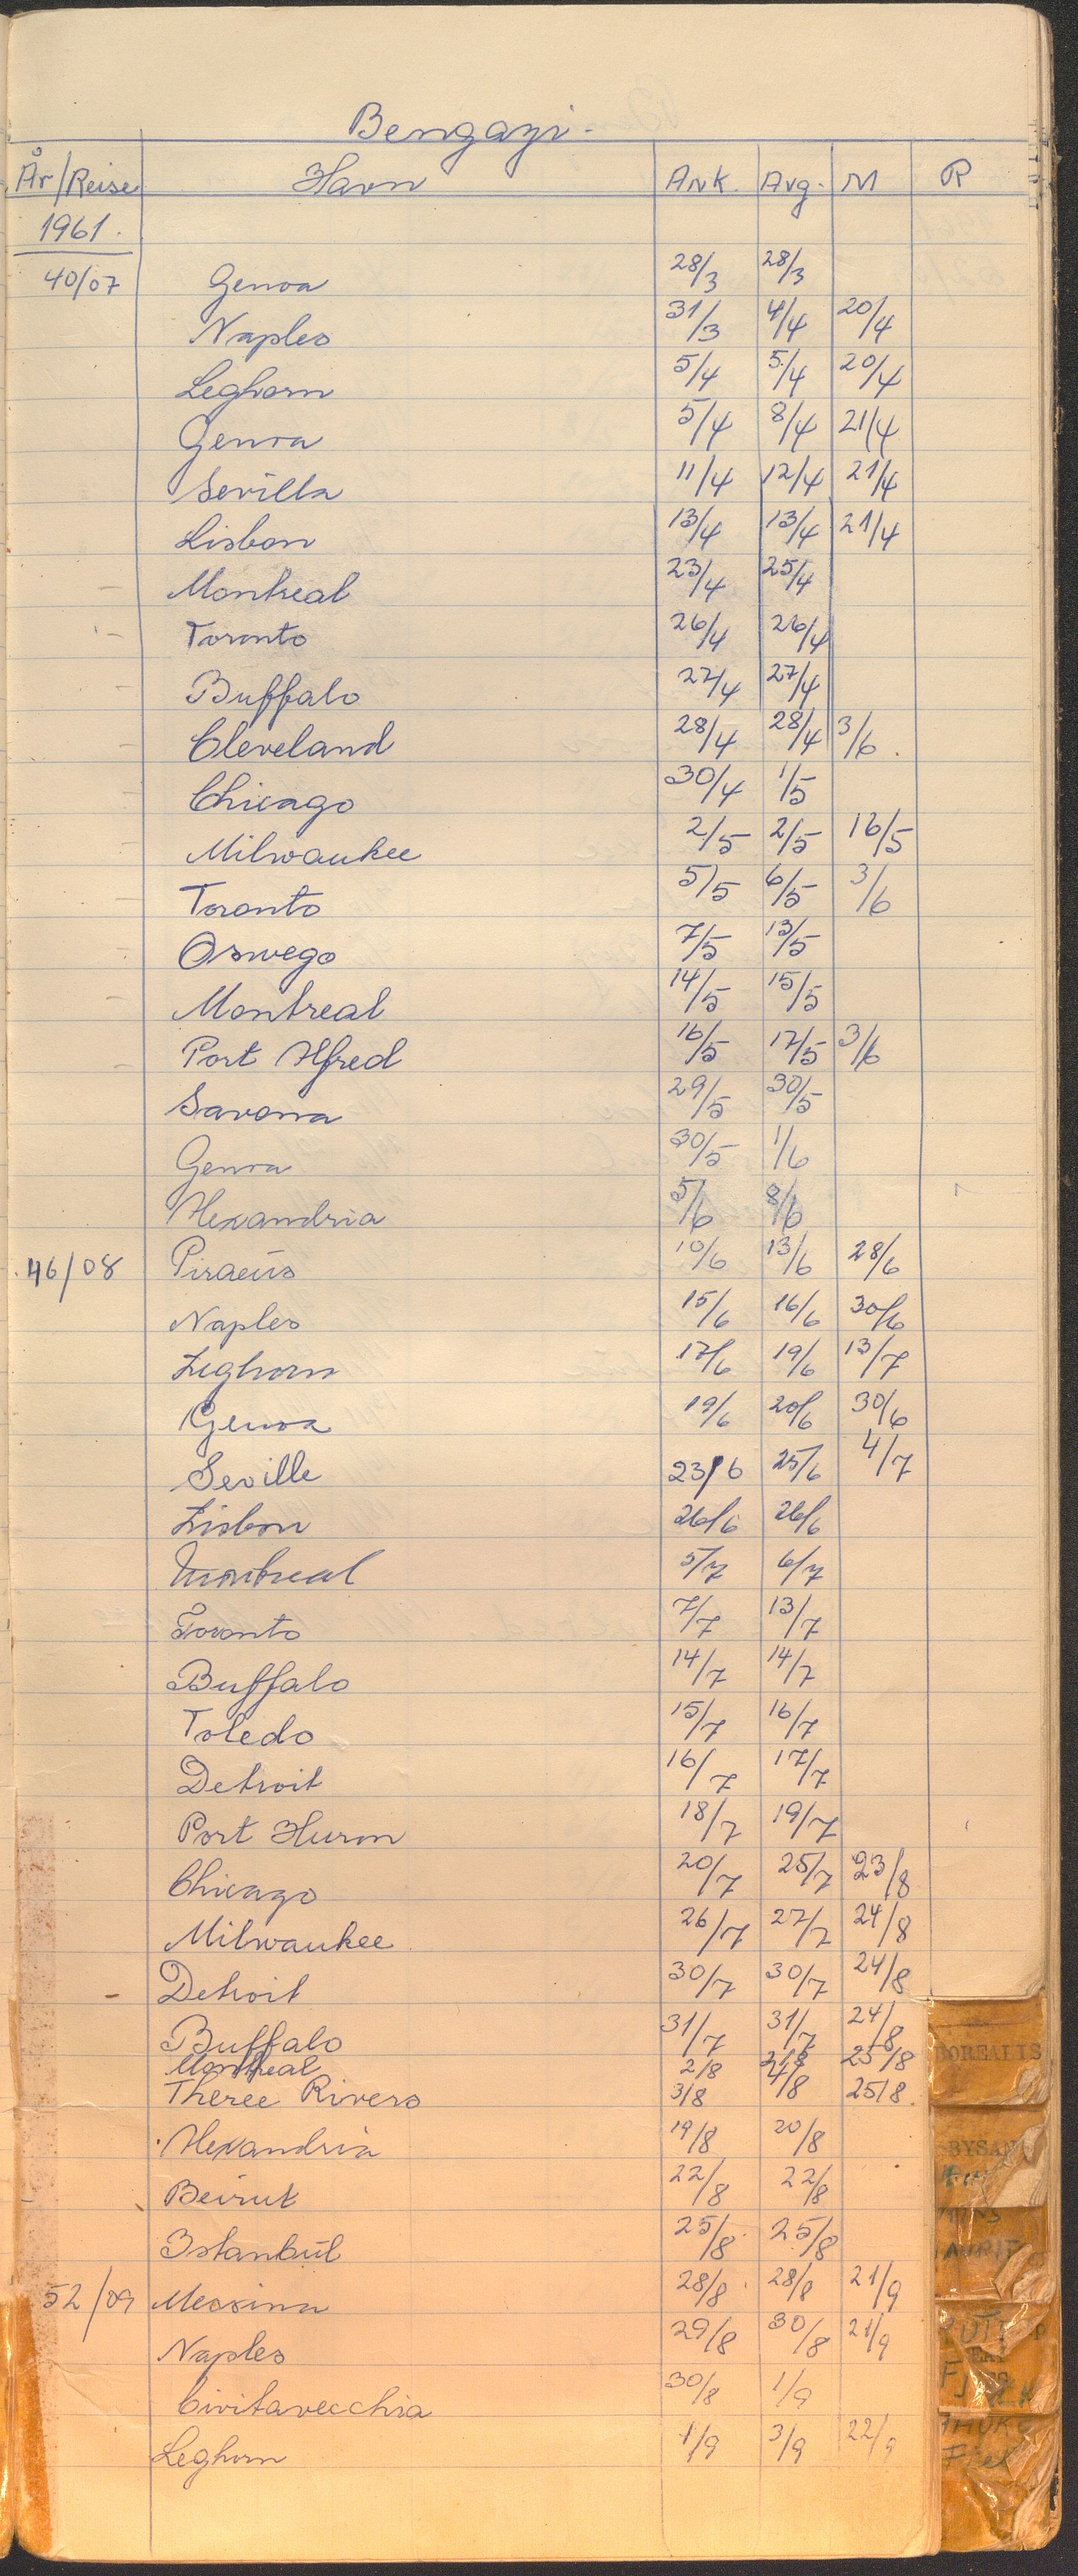 Bengazi.
År/Reise Havn Ank. Avg. M R
1961.
40/07 Genoa 28/3 28/3
Naples 31/3 4/4 20/4
Leghorn 5/4 5/4 20/4
Genoa 5/4 8/4 21/4
Sevilla 11/4 12/4 21/4
Lisbon 13/4 13/4 21/4
Montreal 23/4 25/4
Toronto 26/4 26/4
Buffalo 27/4 27/4
Cleveland 28/4 28/4 3/6
Chicago 30/4 1/5
Milwaukee 2/5 2/5 16/5
Toronto 5/5 6/5 3/6
Oswego 7/5 13/5
Montreal 14/5 15/5
Port Alfred 16/5 17/5 3/6
Savona 29/5 30/5
Genoa 30/5 1/6
Alexandria 5/6 8/6
46/08 Piraeus 10/6 13/6 28/6
Naples 15/6 16/6 30/6
Leghorn 17/6 19/6 13/7
Genoa 19/6 20/6 30/6
Seville 23/6 25/6 4/7
Lisbon 26/6 26/6
Montreal 5/7 6/7
Toronto 7/7 13/7
Buffalo 14/7 14/7
Toledo 15/7 16/7
Detroit 16/7 17/7
Port Huron 18/7 19/7
Chicago 20/7 25/7 23/8
Milwaukee 26/7 27/7 24/8
Detroit 30/7 30/7 24/8
Buffalo 31/7 31/7 24/8
Montreal 2/8 2/8 25/8
Theree Rivers 3/8 4/8 25/8.
Alexandria 19/8 20/8
Beirut 22/8 22/8
Istanbul 25/8 25/8
52/09 Messina 28/8 28/8 21/9
Naples 29/8 30/8 21/9
Civitavecchia 30/8 1/9
Leghorn 1/9 3/9 22/9
BOREALIS
BYSAN